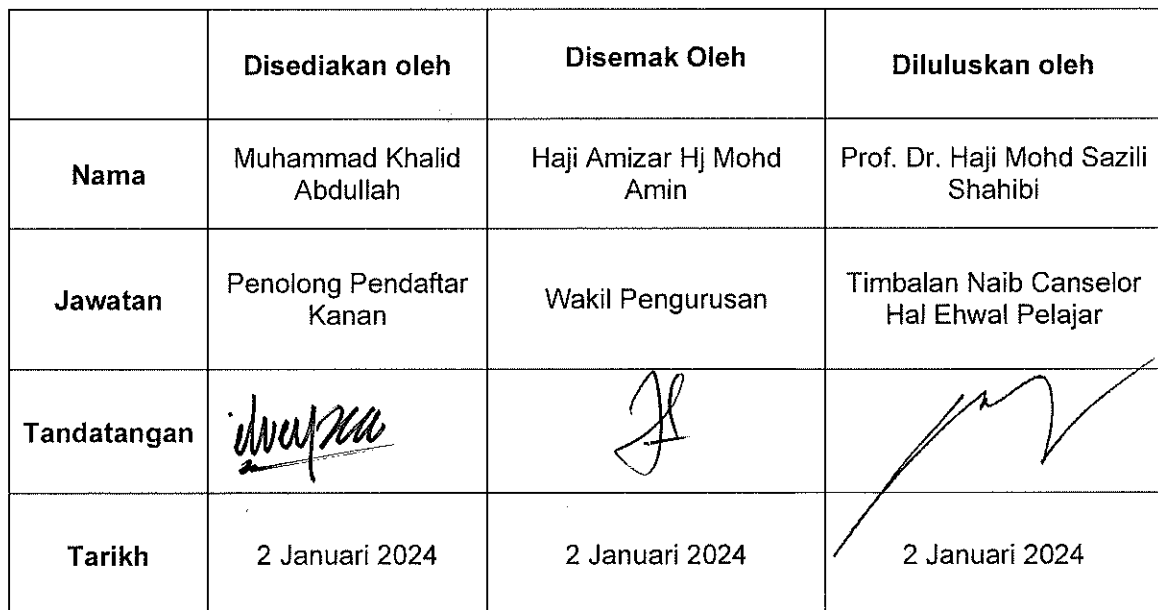 Disediakan oleh
Disemak Oleh
Diluluskan oleh
Nama
Muhammad Khalid
Abdullah
Haji Amizar Hj Mohd
Amin
Prof. Dr. Haji Mohd Sazili
Shahibi
Jawatan
Penolong Pendaftar
Kanan
Wakil Pengurusan
Timbalan Naib Canselor
Hal Ehwal Pelajar
Tandatangan
Tarikh
2 Januari 2024
2 Januari 2024
2 Januari 2024